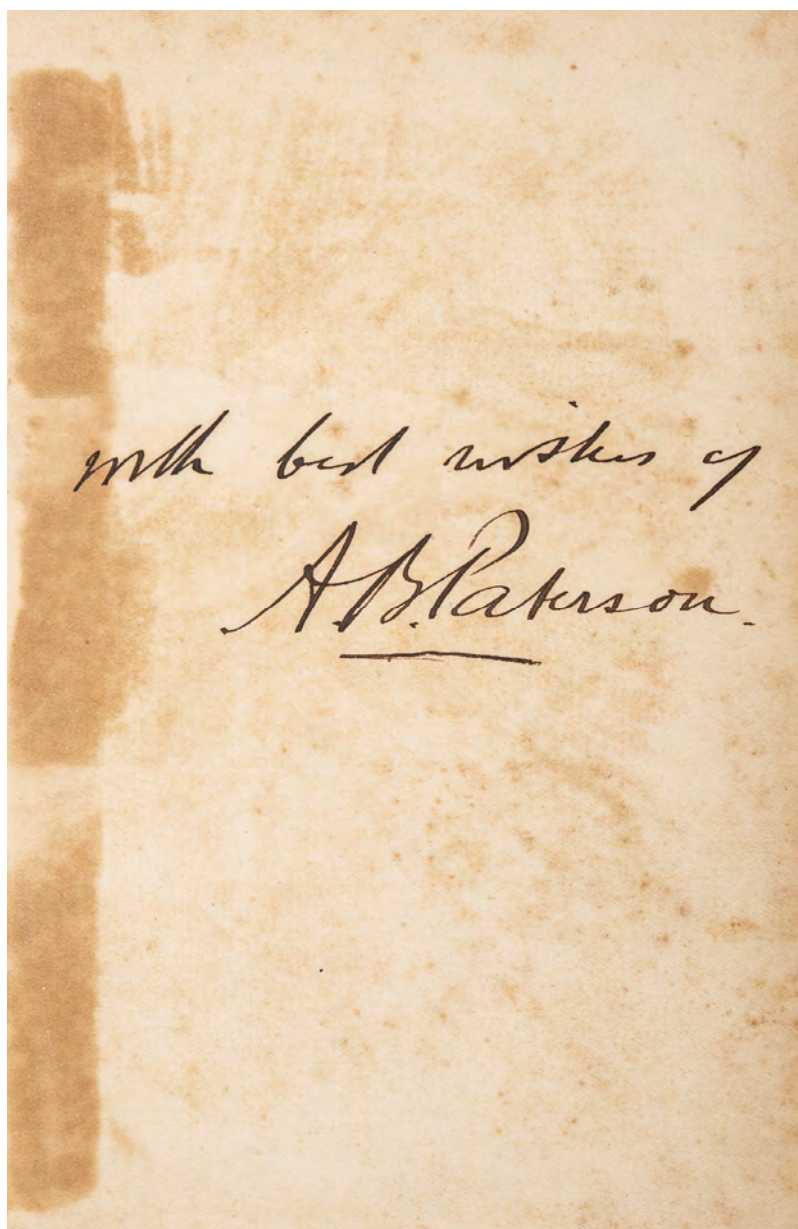 with best wishes of
A.B. Paterson.